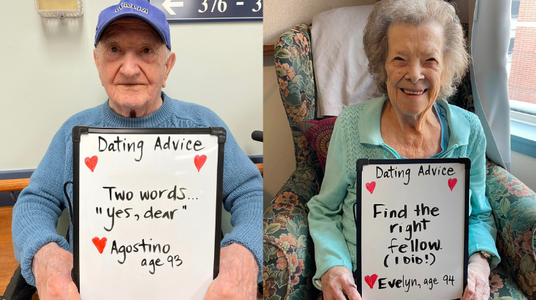 376 - 3
Dating Advice
Two words...
"yes, dear"
Agostino
age 93
Dating Advice
Find the
right
fellow.
(I Did!)
Evelyn, age 94